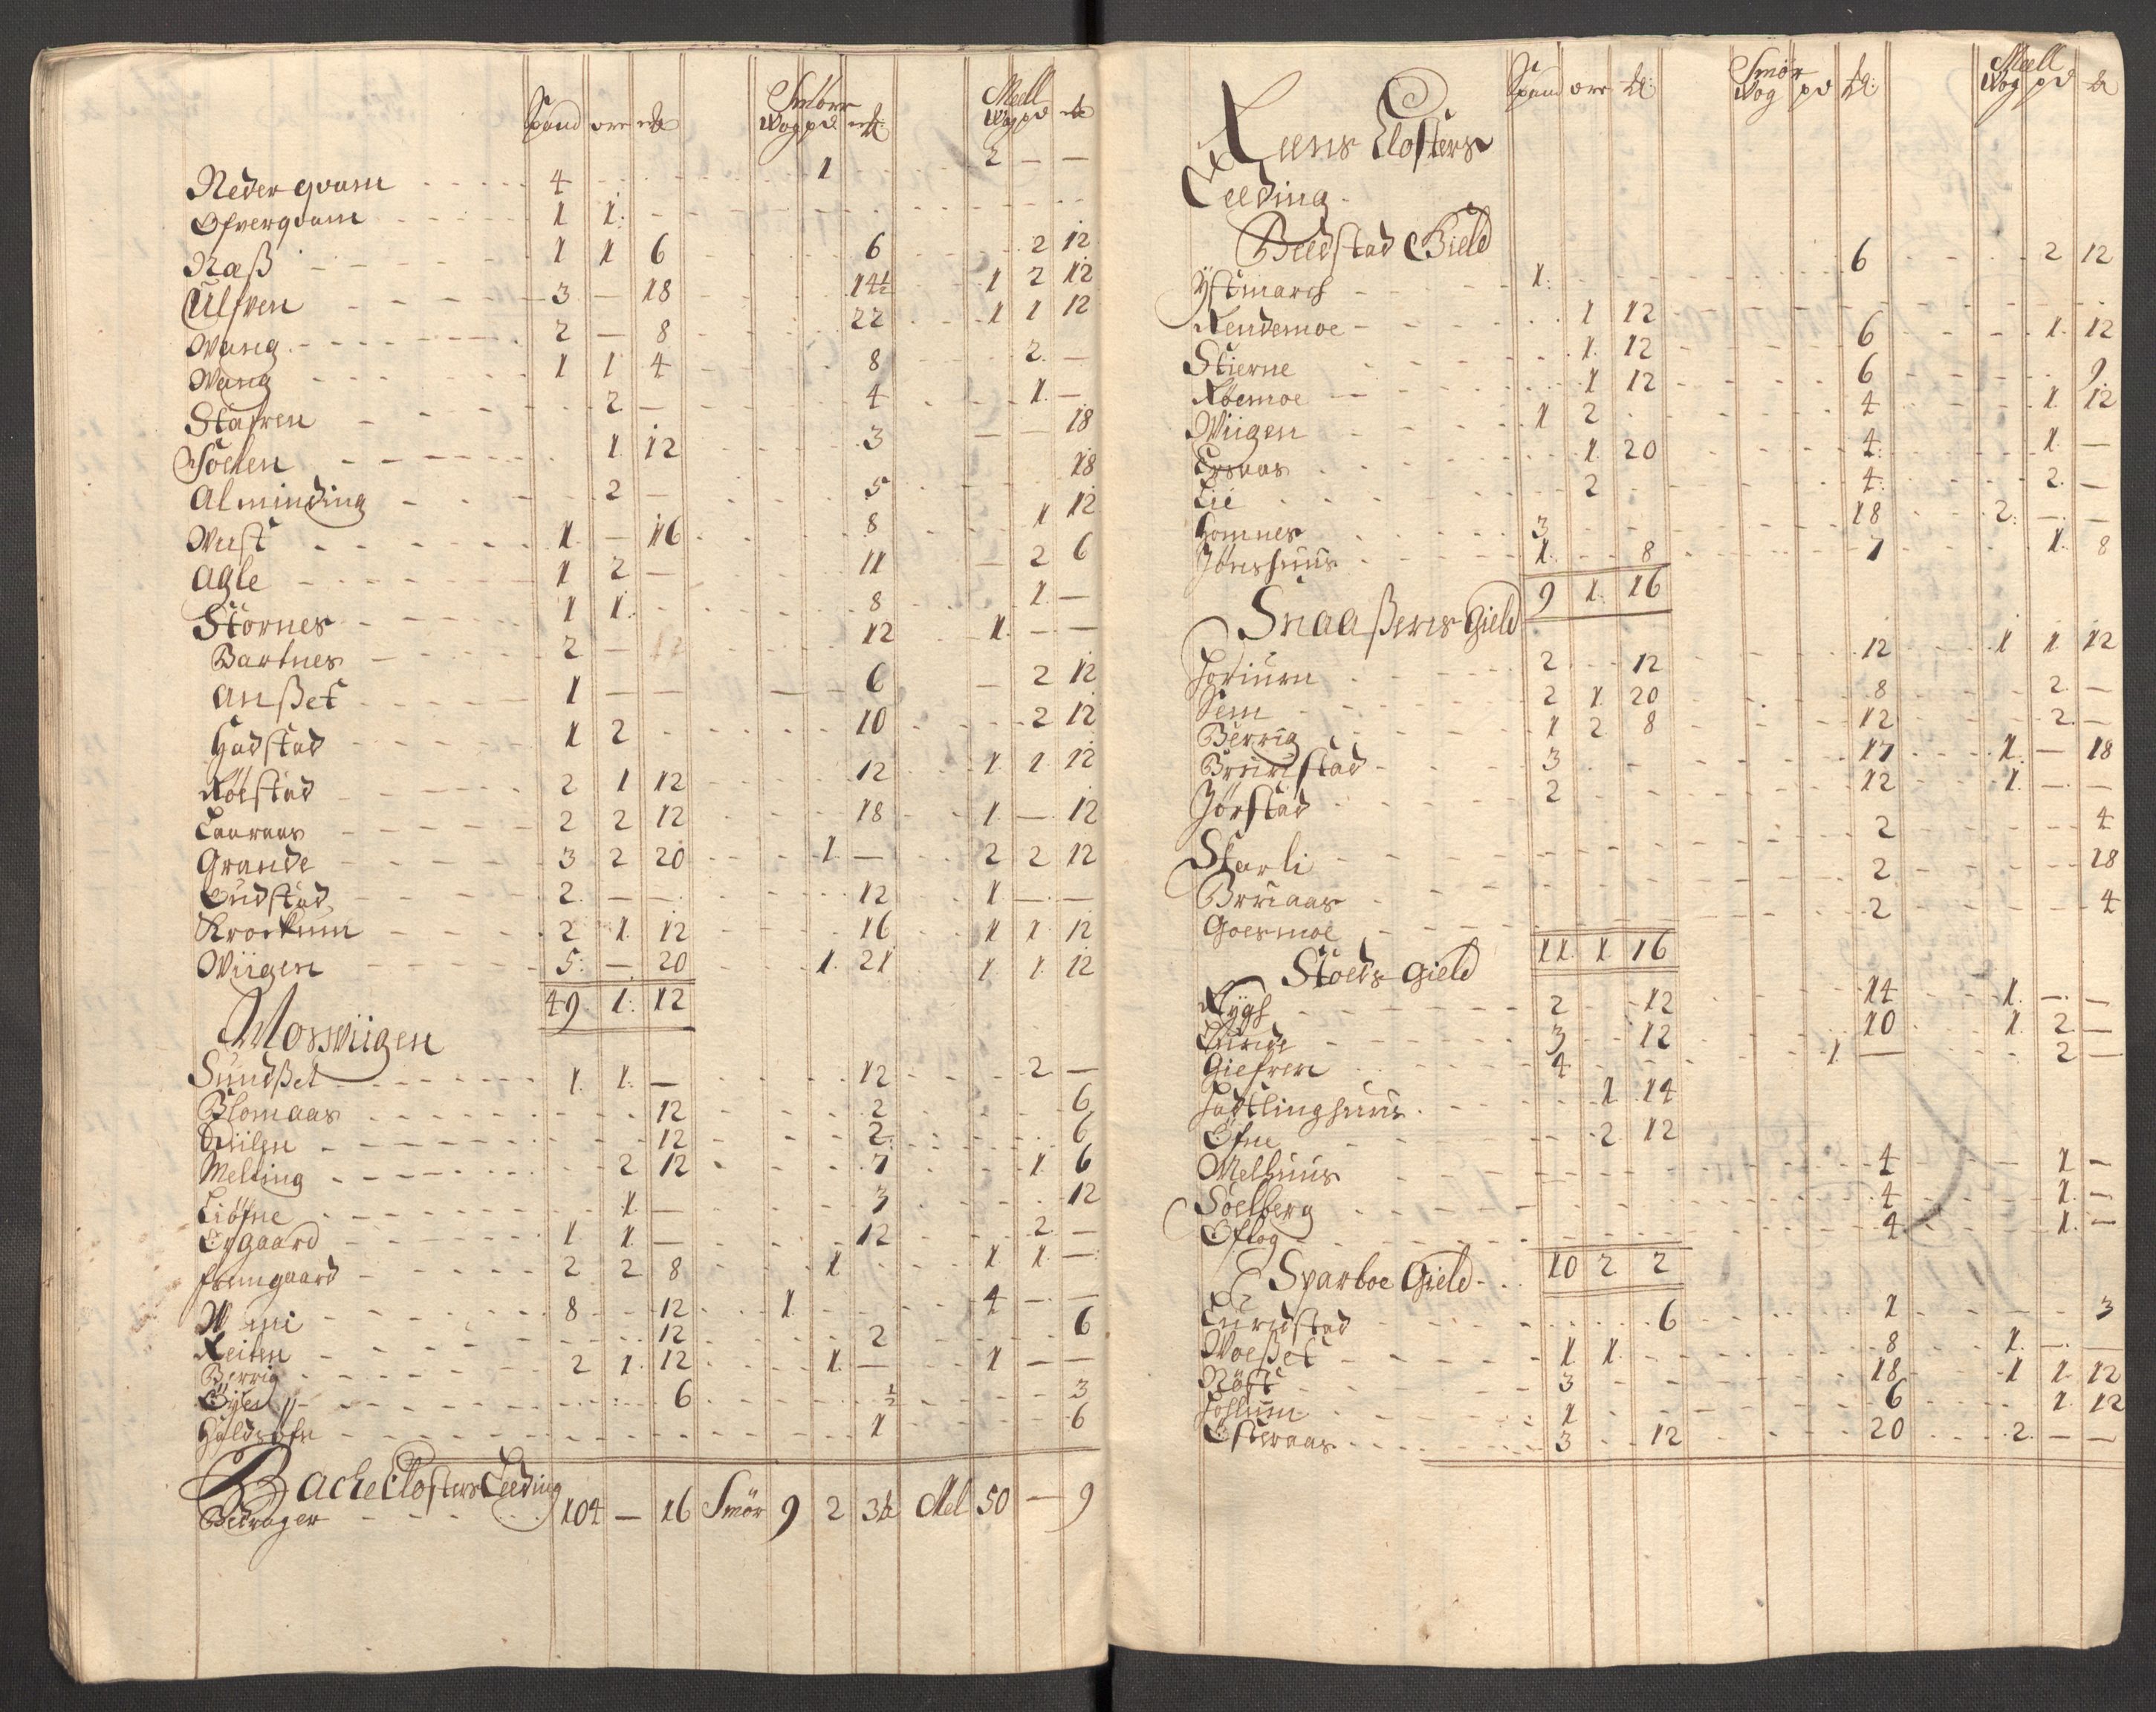 Spand ore
Smörr
Wog pd
Meell
Wog pd
Neder qvam 4 1 2 — —
Ofverqvam 1 1
Naß 1 1 6 6 2 12
Ulfven 3 — 18 14½ 1 2 12
Wang 2 — 8 22 1 1 12
Wang 1 1 4 8 2 —
Stafren 2 — 4 1 —
Soelen 1 12 3 — — 18
Alminding 2 — 5 18
Wust 1 — 16 8 1 12
Agle 1 2 — 11 — 2 6
Störnes 1 1 8 1 —
Bartnes 2 — 12 12 1 — —
Anßet 1 — — — 6 — 2 12
Hadstad 1 2 10 2 12
Röestad 2 1 12 12 1 1 12
Lauraas 2 2 12 18 1 — 12
Grande 3 2 20 1 — 2 2 12
Gudstad 2 — — 12 1 — —
Krockum 2 1 12 16 1 1 12
Wiigen 5 — 20 1 21 1 1 12
49 1 12
Mosswiigen
Sundßet 1 1 — 12 2 —
Blomaas 12 2 6
Qviilen 12 2 6
Melting 2 12 7 1 6
Liöfne 1 — 3 12
Eygaard 1 1 — 12 2 —
Fremgaard 2 2 8 1 1 1 —
8 12 1 4 — —
Reiten 12 2 6
Berrig 2 1 12 1 — 1 — —
Öyen 6 ½ 3
1 6
Bache Closters Leeding
Bedrager 104 — 16 Smör 9 2 3½ Mel 50 — 9
Spand ore
Smör
Wog pd
Meell
Wog pd
Reens Closters
Leeding
Beedstad Gield
Ÿstmarch 1 6 2 12
Rendemoe 1 12
Stierne 1 12 6 1 12
Röemoe 1 12 6 9
Wiigen 1 2 4 1 12
1 20 4 1 —
Lie 2 4 2 —
Homnes 3 18 2 — —
Jönshuus 1 8 7 1 8
9 1 16
Snaaßens Gield
2 12 12 1 1 12
Sem 2 1 20 8 2 —
Berrig 1 2 8 12 2 —
3 17 1 — 18
Jörstad 2 12 1 — —
Starli 2 4
Brriaas 2 18
Goesmoe 2 4
11 1 16
Stoeds Gield
2 12 14 1 — —
3 12 10 1 2 —
Giefren 4 1 — 2 —
1 14
Ofne 2 12
Melhuus 4 1 —
Soelberg 4 1 —
Oflog 4 1 —
10 2 2
Sparboe Gield
6 1 3
Woeßet 1 1 8 1 — —
Röst 3 18 1 1 12
1 6 1 12
Österaas 3 12 20 2 — —